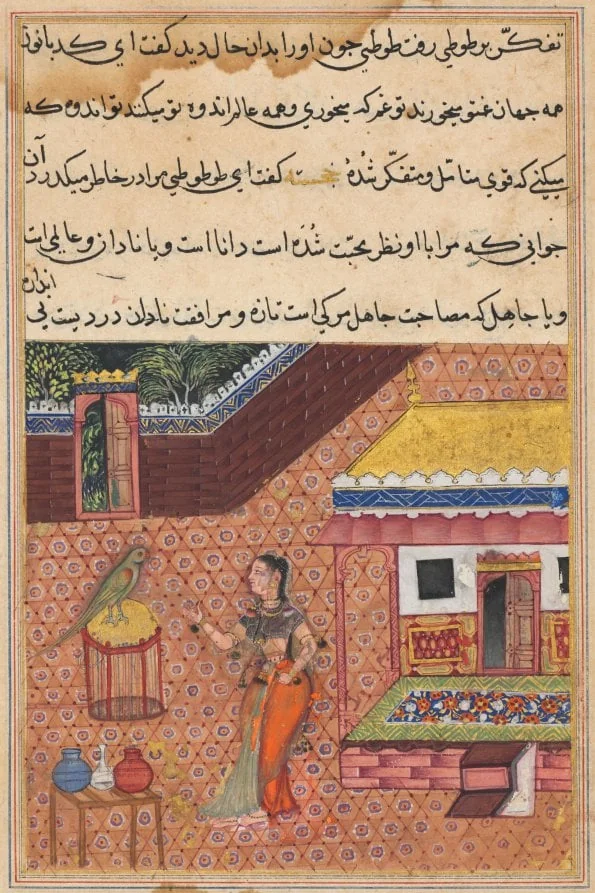 تفکر بر طوطی رفت طوطی چون او را بدان حال دید گفت ای کدبانو
همه جهان غم تو میخورند تو غم که میخوری و همه عالم اندوه تو میکنند تو اندوه که
میکنی که قوی متامل و متفکر شدهٔ خجسته گفت ای طوطی مرا در خاطر میگذرد آن
جوانی که مرا با او نظر محبت شده است دانا است و یا نادان و عالم است
و یا جاهل که مصاحبت جاهل مرگی است تازه و مرافقت نادان دردیست بی اندازه